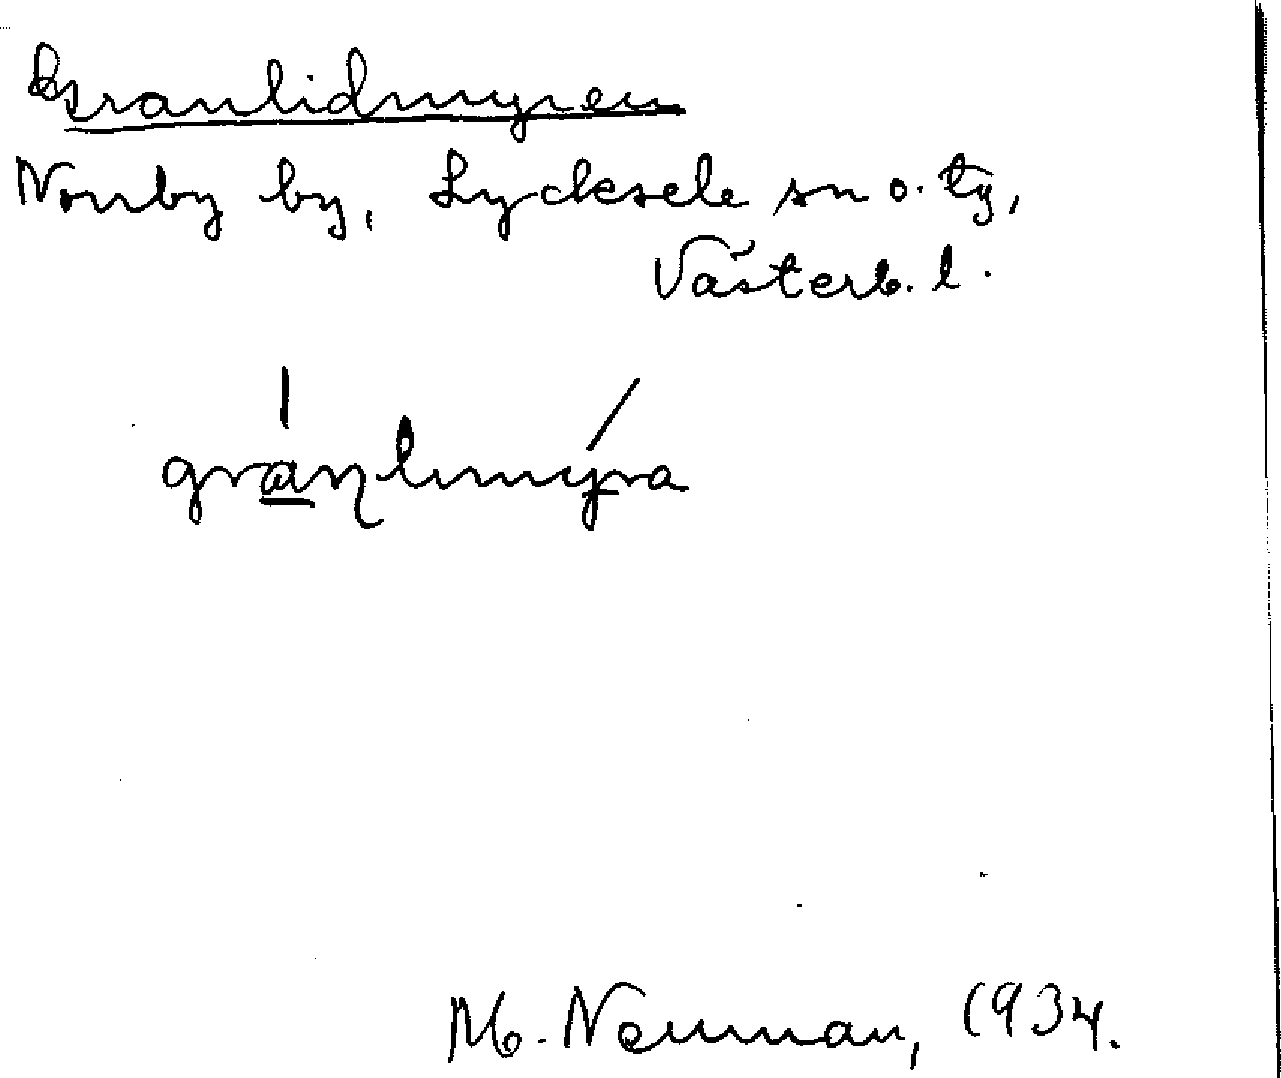 Granlidmyren
Norrby by, Lycksele sn o. tg,
Västerb. l.
M. Neuman, 1934.